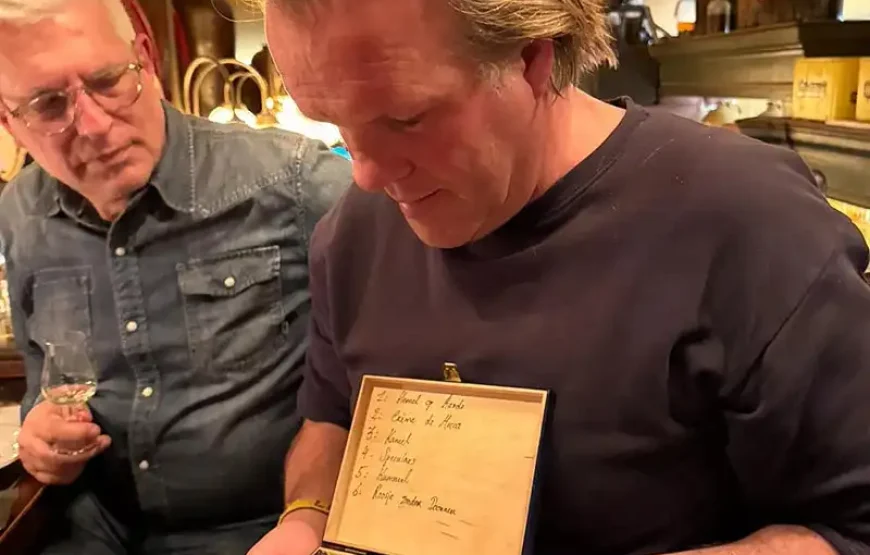 1: Hemel op Aarde
2: Crème de Ania
3: Kaneel
4: Speculaas
5: Kummel
6: Roosje zonder Doornen